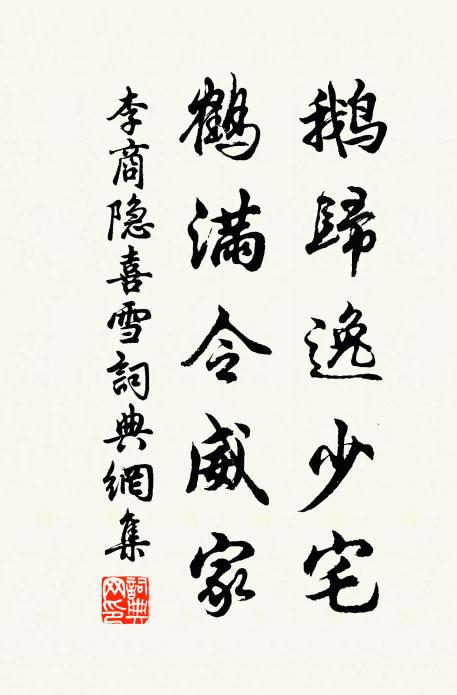 鵝歸逸少宅
鶴滿令威家
李商隐喜雪詞典網集
詞典网印